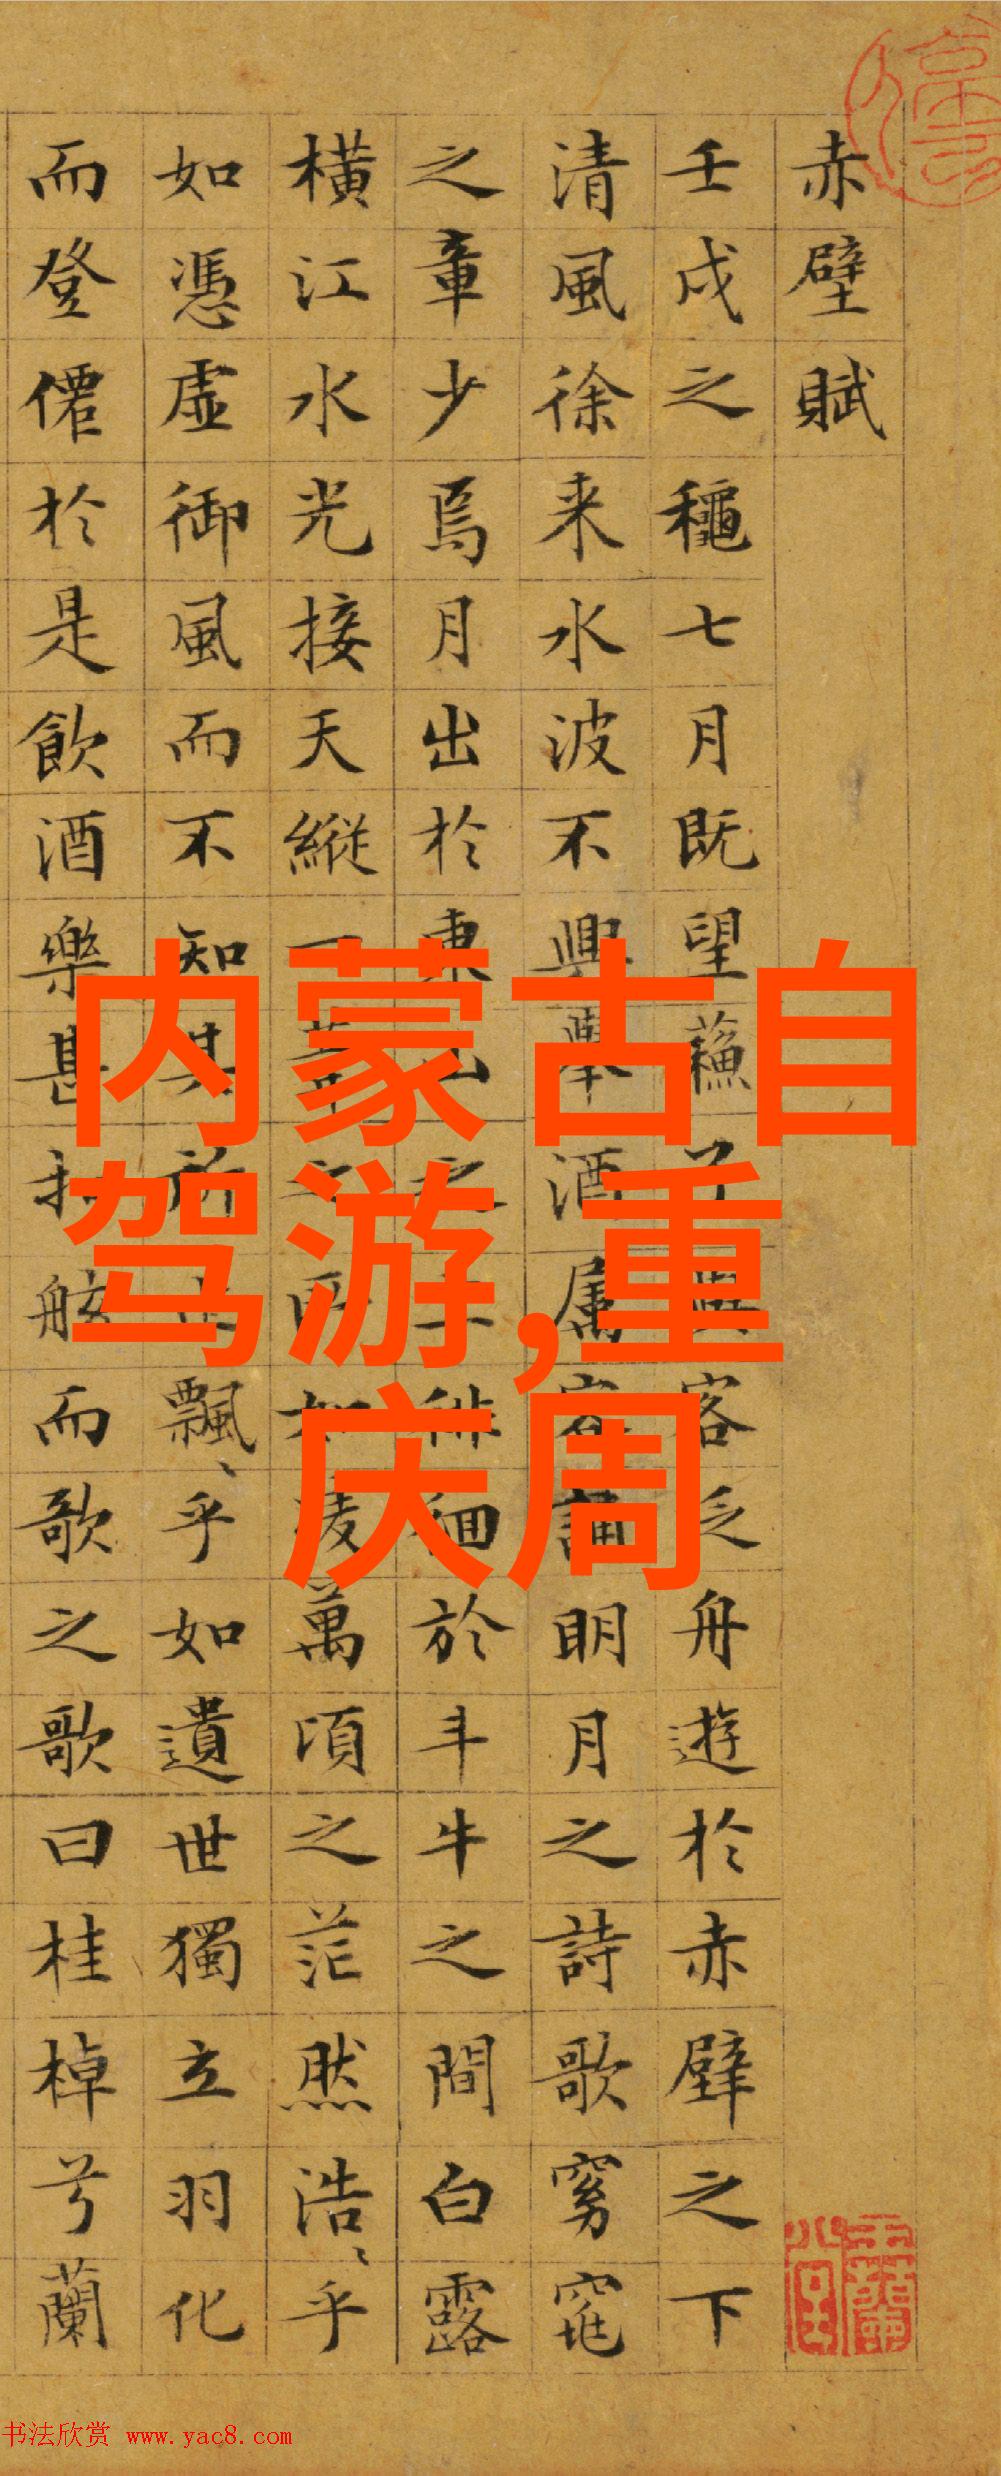 赤壁賦
壬戌之穐七月既望蘓子與客泛舟遊於赤壁之下
清風徐来水波不興舉酒属客誦明月之詩歌窈窕
之章少焉月出於東山之上徘徊於斗牛之間白露
橫江水光接天縱一葦之所如凌萬頃之茫然浩〻乎
如憑虛御風而不知其所止飄〻乎如遺世獨立羽化
而登僊於是飲酒樂甚扣舷而歌之歌曰桂棹兮蘭
内蒙古自
驾游,重
庆周
书法欣赏 www.yac8.com